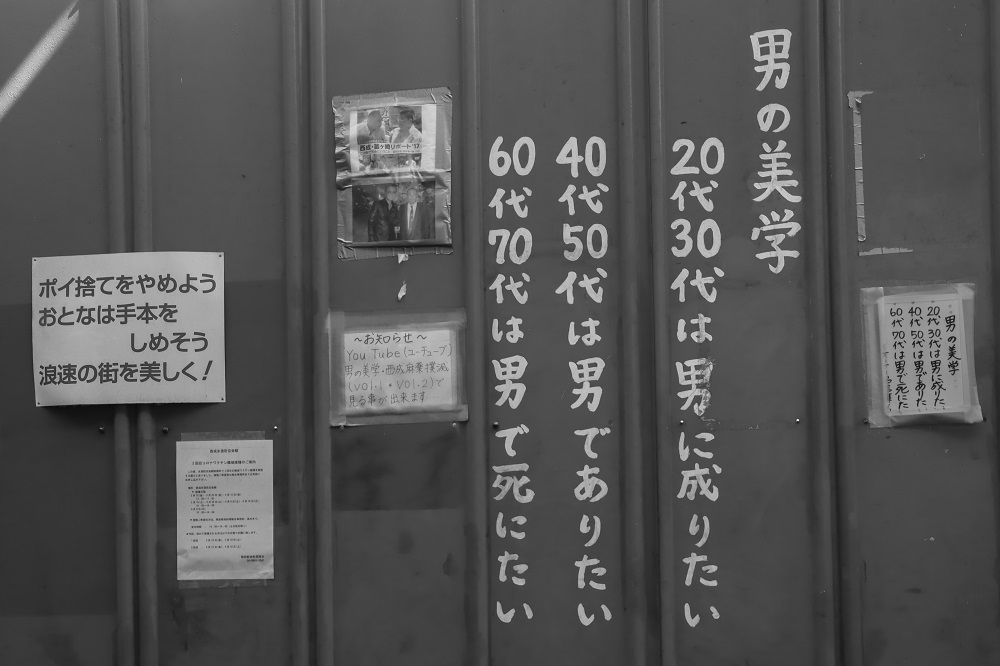 男の美学
20代30代は男に成りたい
40代50代は男でありたい
60代70代は男で死にたい
男の美学
20代30代は男に成りた
40代50代は男でありた
60代70代は男で死にた
西成・釜ヶ崎リポート'17
～お知らせ～
You Tube(ユーチューブ)
男の美学・西成麻薬撲滅
(VOl.1・VOl.2)で
見る事が出来ます…
ポイ捨てをやめよう
おとなは手本を
しめそう
浪速の街を美しく！